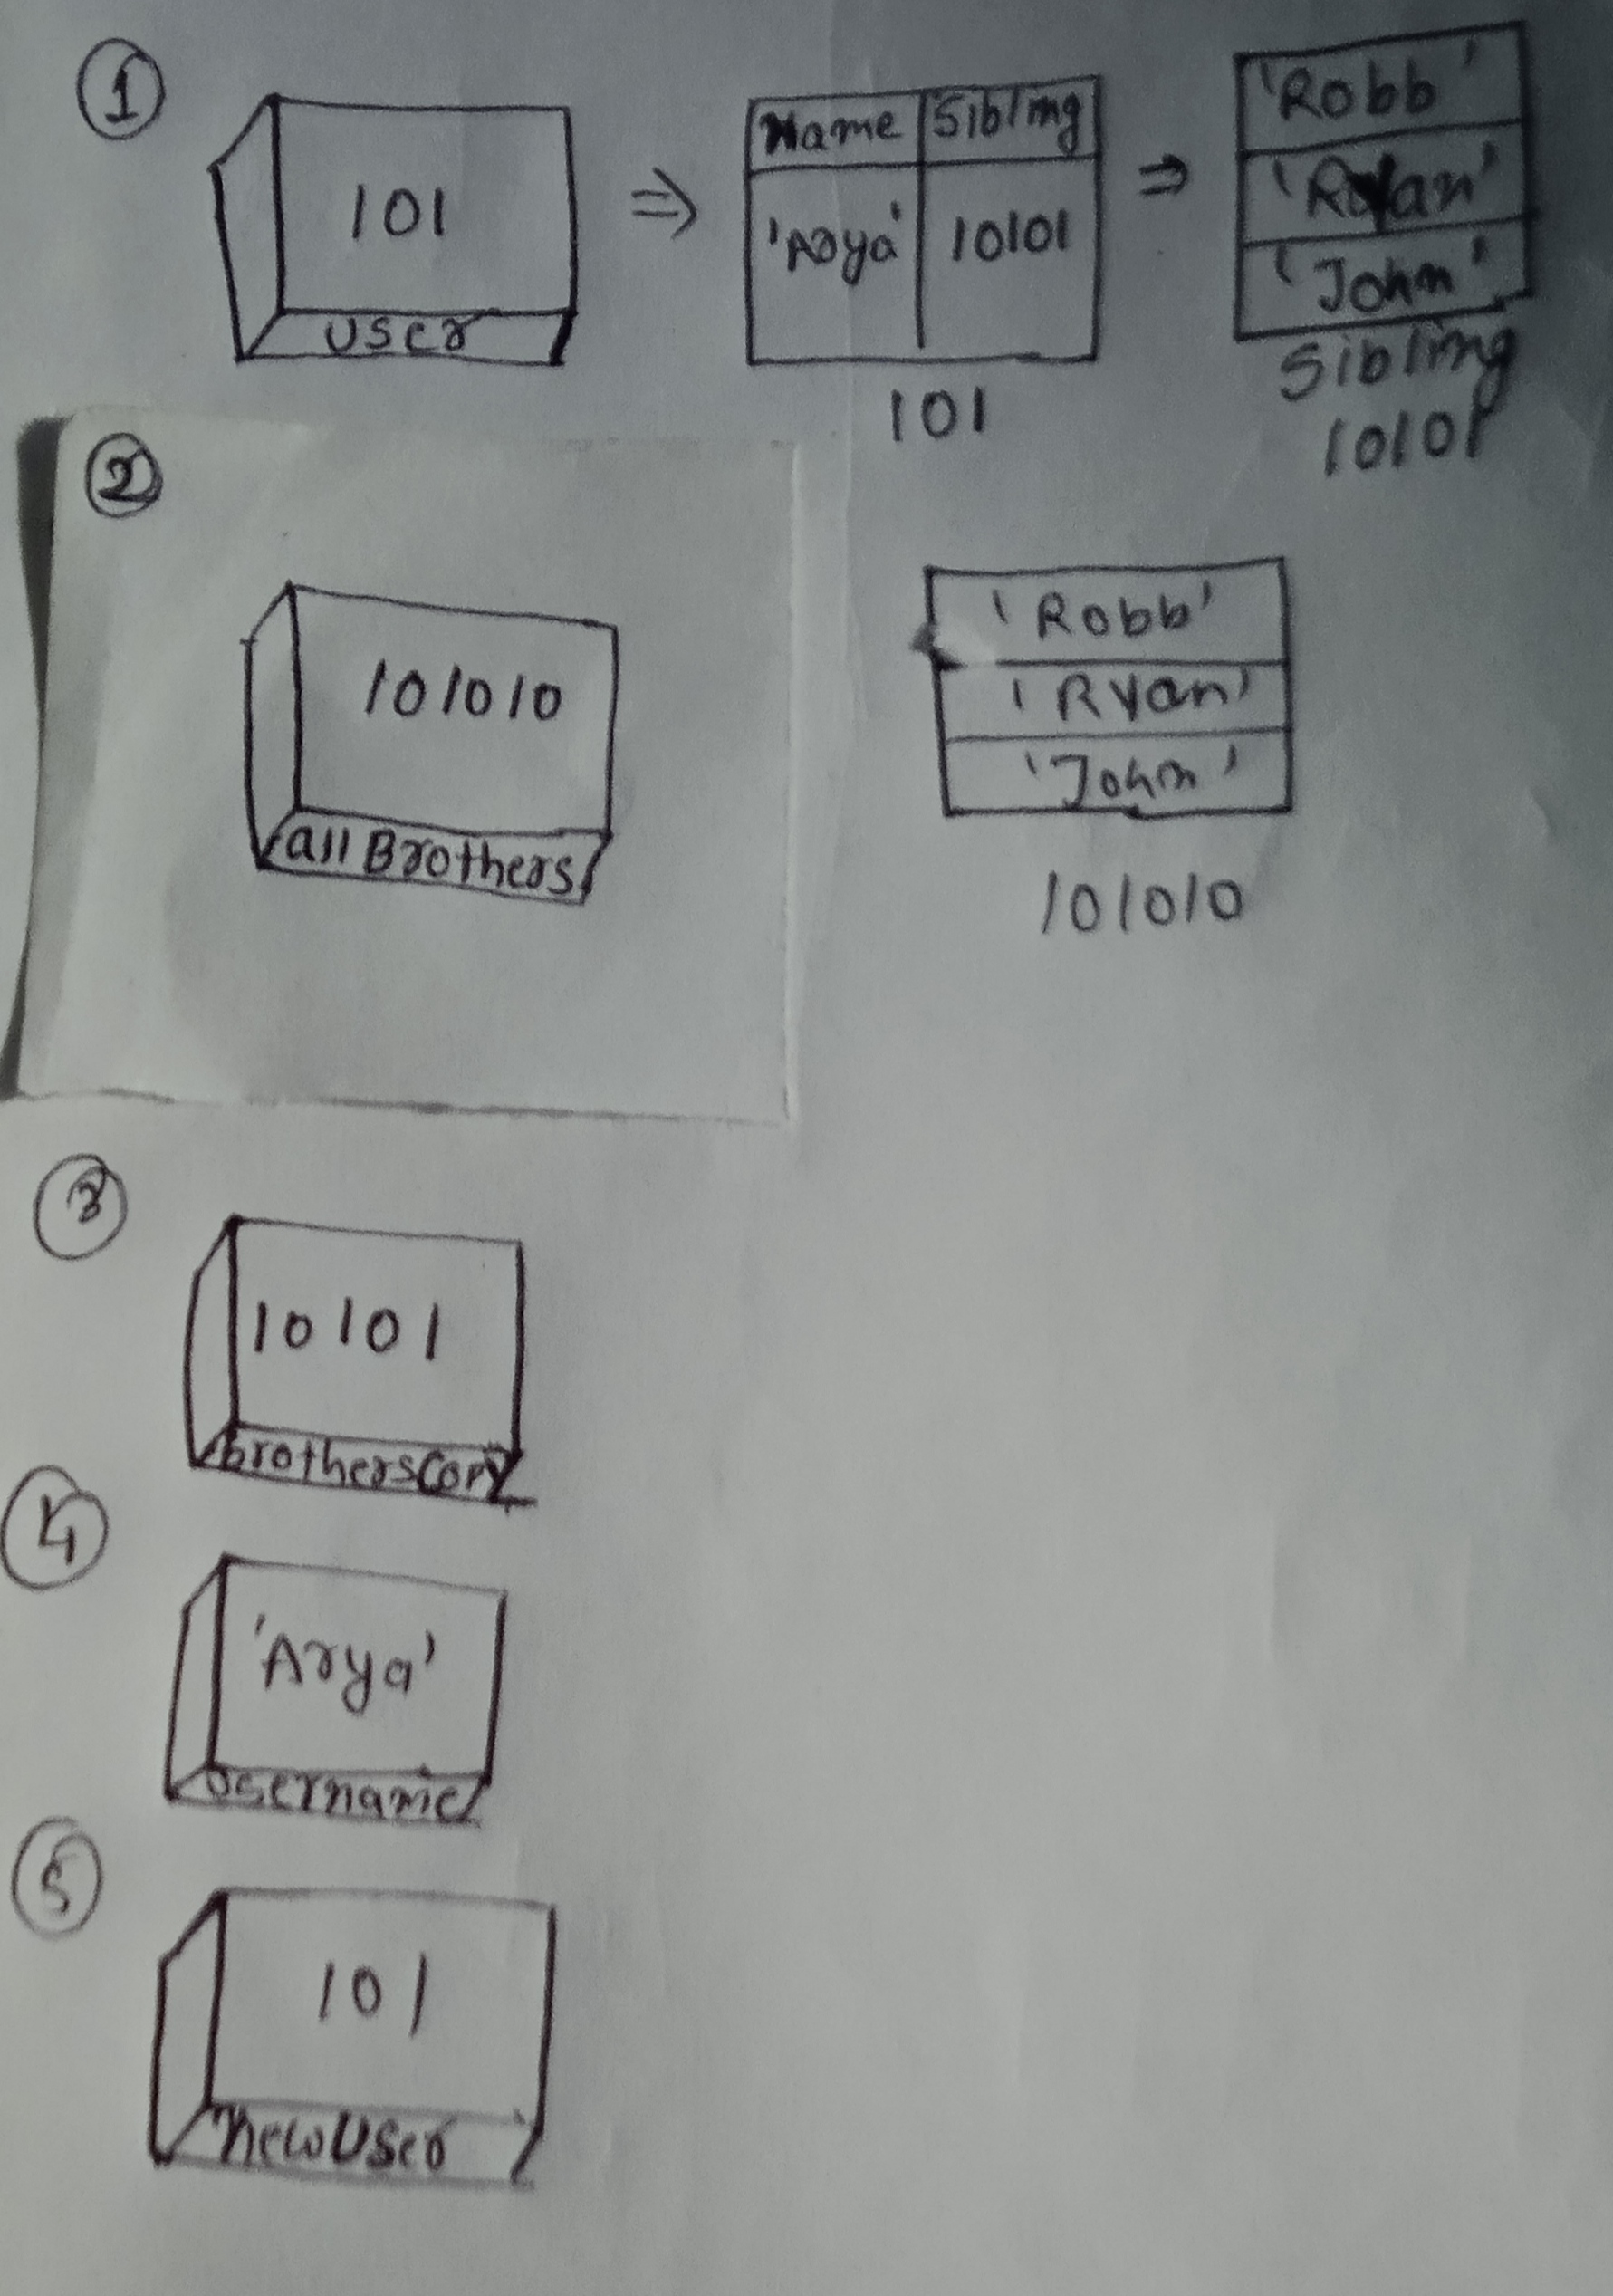 1
Name Sibling
101
'Arya' 10101
user
101
'Robb'
'Ryan'
'John'
Sibling
10101
2
101010
all Brothers
'Robb'
'Ryan'
'John'
101010
3
10101
brothersCopy
4
'Arya'
username
5
101
newUser